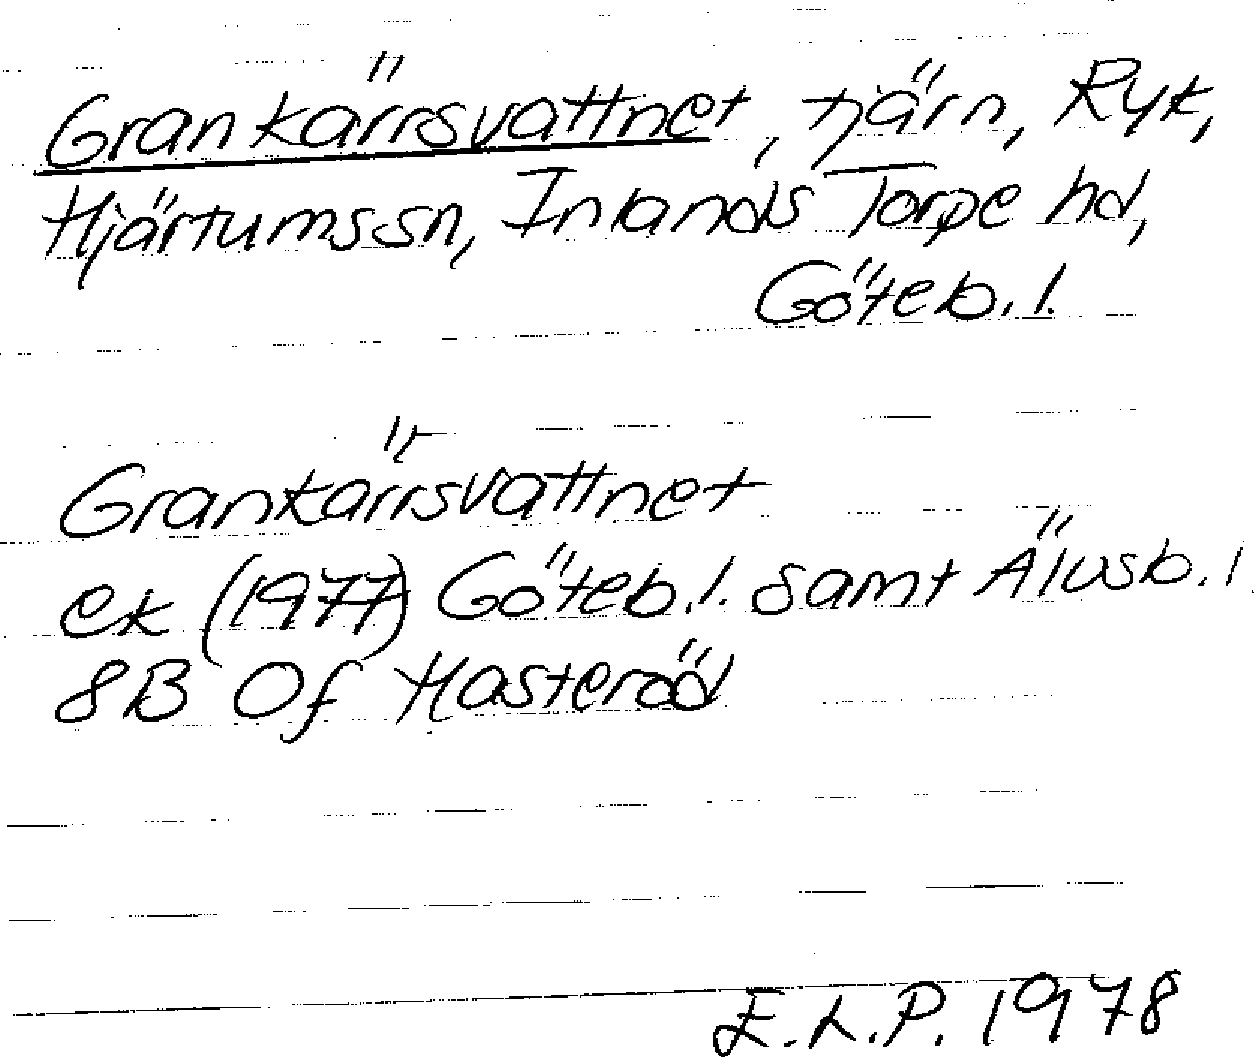 Grankärrsvattnet, tjärn, Ryk,
Hjärtums sn, Inlands Torpe hd,
Göteb. l.
Grankärrsvattnet
ek (1977) Göteb. l. samt Älvsb. l
8B 0f Hasteröd
E.L.P. 1978